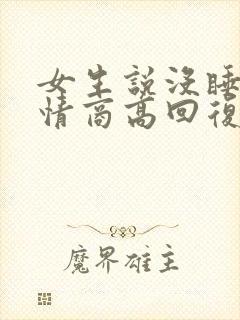 女生說沒睡
情商高回復
魔界雄主